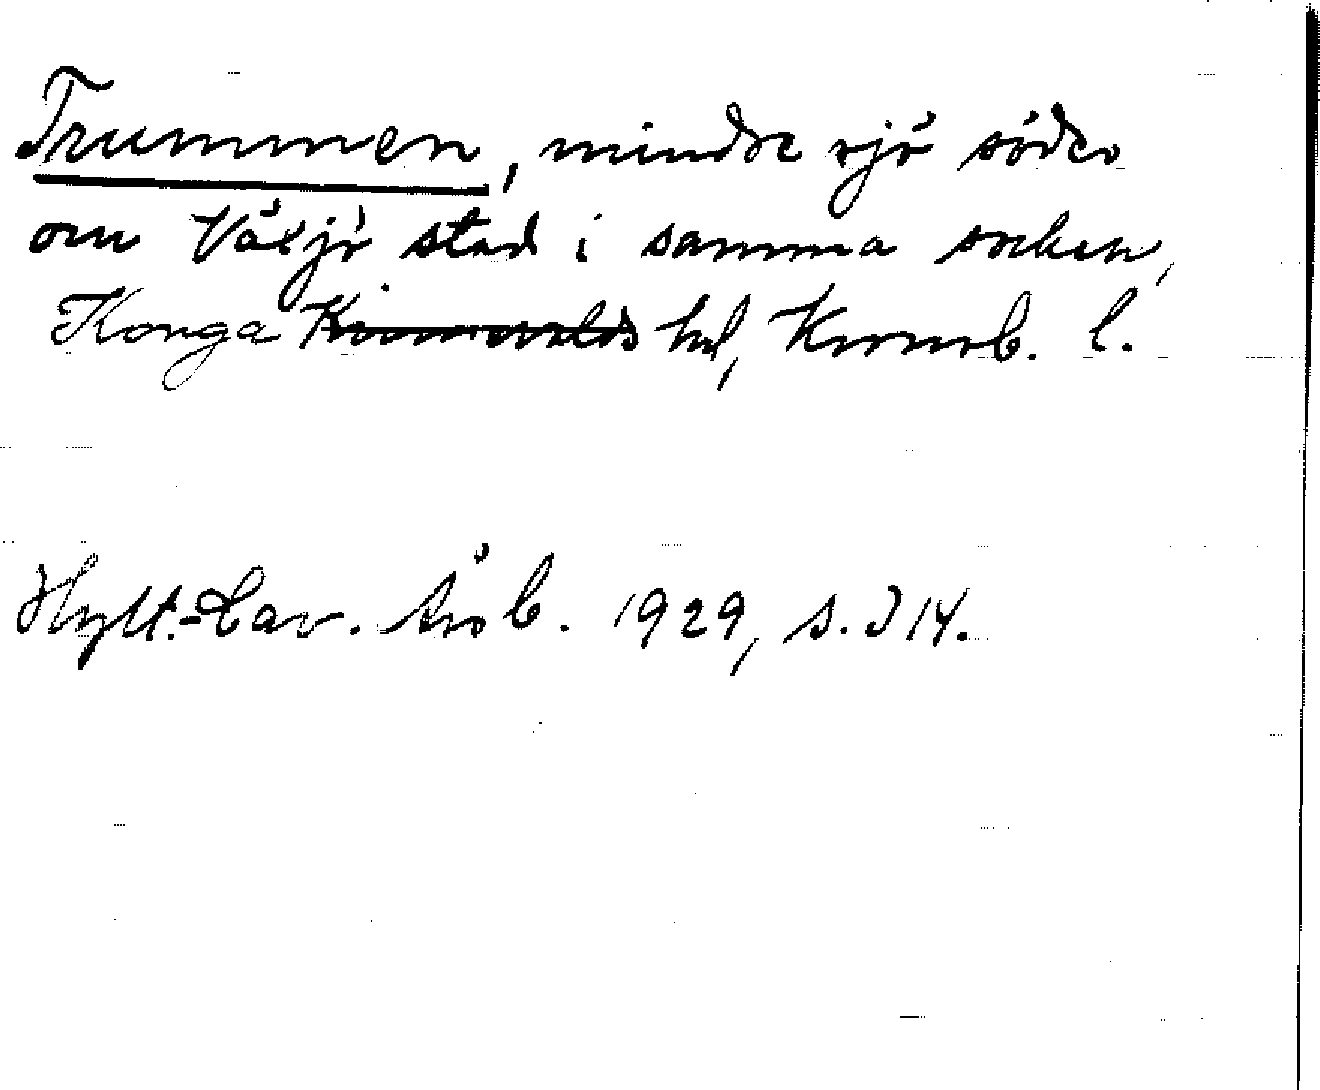 Trummen, mindre sjö söder
om Växjö stad i samma socken,
Konga Kinnevalds hd, Kronob. l.
Hylt.-Cav. Årsb. 1929, s. J 14.